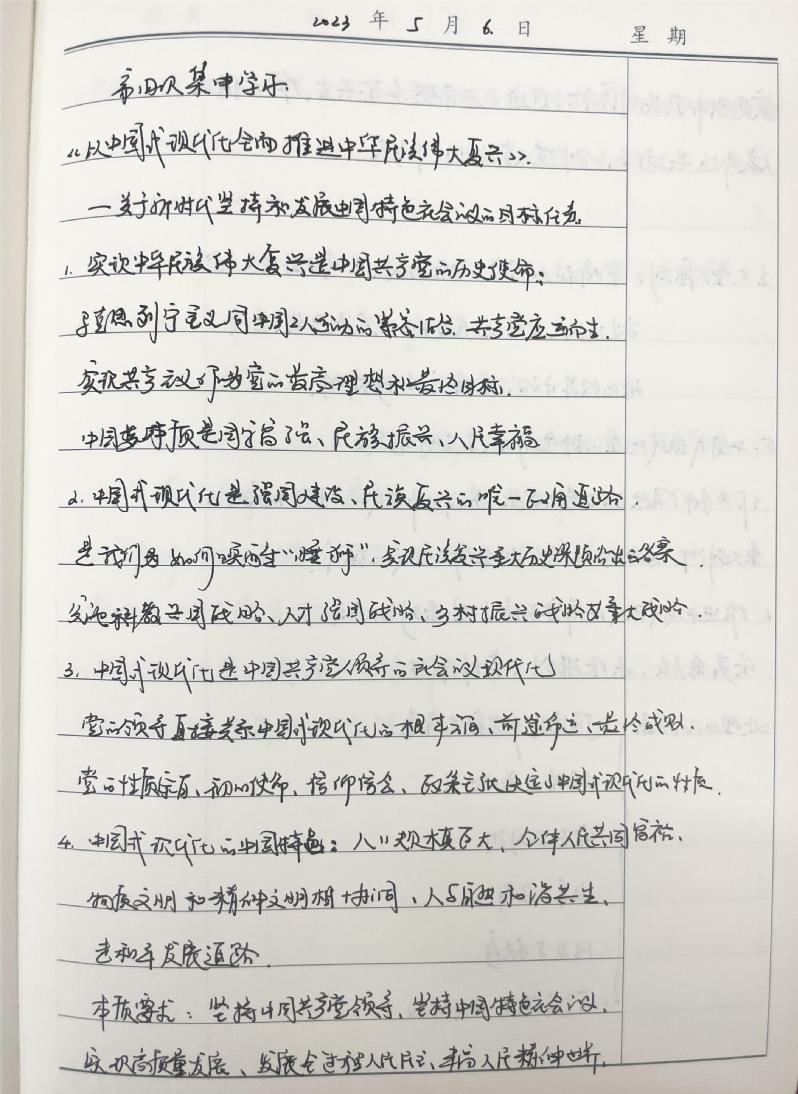 2023 年 5 月 6 日 星期
第四次集中学习
《以中国式现代化全面推进中华民族伟大复兴》
—关于新时代坚持和发展中国特色社会主义的目标任务
1. 实现中华民族伟大复兴是中国共产党的历史使命：
马克思列宁主义同中国工人运动的紧密结合，共产党应运而生.
实现共产主义作为党的最高理想和最终目标.
中国梦本质是国家富强、民族振兴、人民幸福
2. 中国式现代化是强国建设、民族复兴的唯一正确道路.
是我们为如何唤醒“睡狮”，实现民族复兴重大历史课题给出的答案.
实施科教兴国战略、人才强国战略、乡村振兴战略等重大战略.
3. 中国式现代化是中国共产党领导的社会主义现代化
党的领导直接关系中国式现代化的根本方向、前途命运、最终成败.
党的性质宗旨、初心使命、信仰信念、政策主张决定了中国式现代化的性质.
4. 中国式现代化的中国特色：人口规模巨大、全体人民共同富裕、
物质文明和精神文明相协调、人与自然和谐共生、
走和平发展道路.
本质要求：坚持中国共产党领导，坚持中国特色社会主义，
实现高质量发展、发展全过程人民民主、丰富人民精神世界、